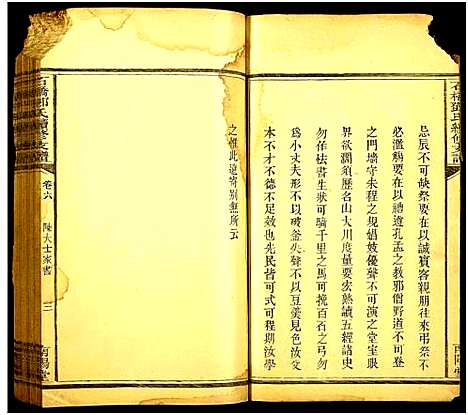 石橋鄧氏續修支譜
忌辰不可缺祭要在以誠賓客親朋往來弔祭不
必濫觴要在以禮道孔孟之教邪僧野道不可與
之門墻守朱程之規娼妓優聲不可入之堂室眼
界欲濶須歷名山大川度量要宏熟讀五經諸史
勿作怯書生狀可騎千里之馬可挽百石之弓勿
為小丈夫形不以破釜失聲不以豆羹見色汝文
不足效汝德不足錄先民皆可式可程期汝學
南陽堂
之椒此遠寄別無所云
石橋鄧氏續修支譜
卷六
陵大士家書
三
南陽堂